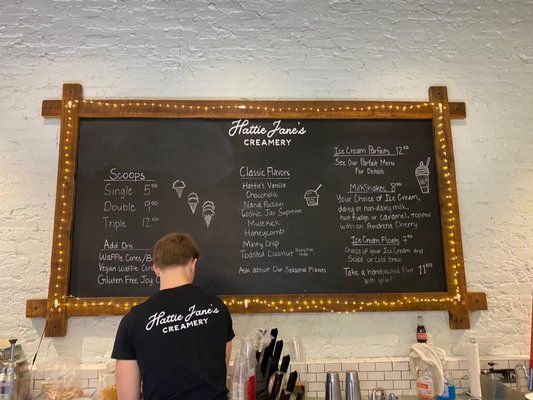 Hattie Jane's
CREAMERY
Scoops
Single 5.00
Double 9.00
Triple 12.00
Add Ons
Waffle Cone
Vegan Waffle Cone
Gluten Free Joy
Classic Flavors
Hattie's Vanilla
Chocoholic
Nana Puddin
Cookie Jar Supreme
Mule Kick
Honeycomb
Minty Chip
Toasted Coconut
Ask about our Seasonal Flavors
Ice Cream Parfaits 12.00
See Our Parfait Menu
For Details
MilkShakes 8.00
Your Choice of Ice Cream,
dairy or non-dairy milk,
hot fudge or caramel, topped
with an Amarena Cherry
Ice Cream Floats 7.00
Choice of your Ice Cream and
Soda or cold brew
Take a handpacked Pint 11.00
with you!
Hattie Jane's
CREAMERY